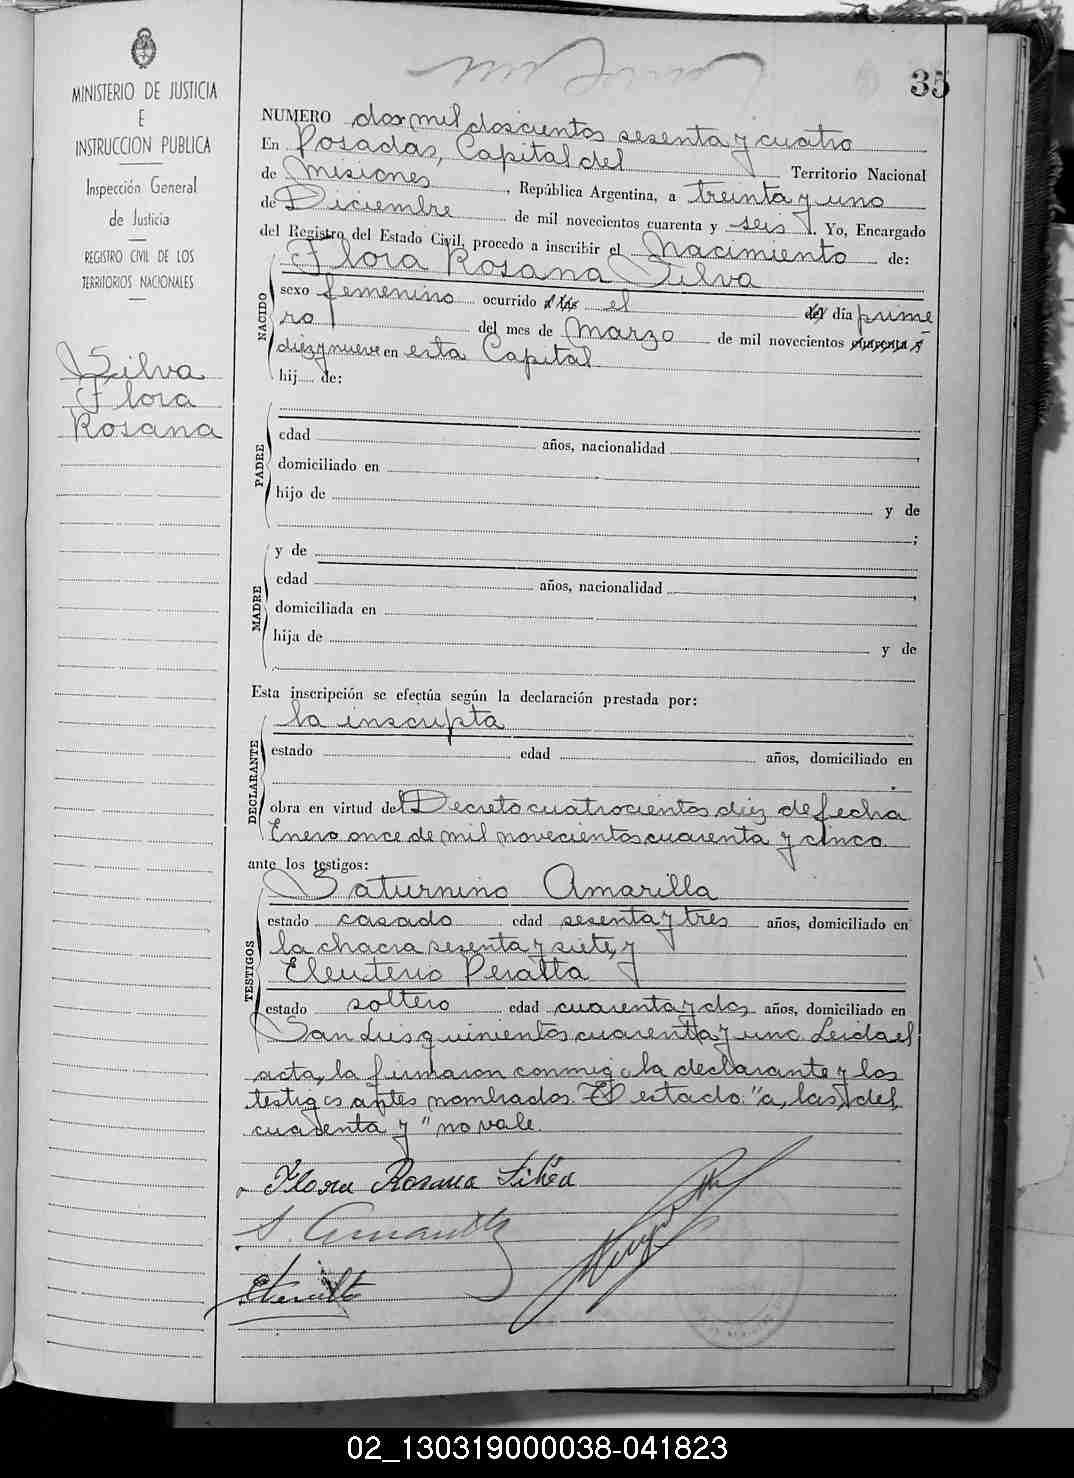 35
MINISTERIO DE JUSTICIA
E
INSTRUCCION PUBLICA
Inspección General
de Justicia
REGISTRO CIVIL DE LOS
TERRITORIOS NACIONALES
Silva
Flora
Rosana
NUMERO dos mil doscientos sesenta y cuatro
En Posadas, Capital del Territorio Nacional
de Misiones, República Argentina, a treinta y uno
de Diciembre de mil novecientos cuarenta y seis. Yo, Encargado
del Registro del Estado Civil, procedo a inscribir el Nacimiento de:
Flora Rosana Silva
NACIDO
sexo femenino ocurrido a las el del día prime
ro del mes de Marzo de mil novecientos cuarenta y
diez y nueve en esta Capital
hij de:
PADRE
edad años, nacionalidad ,
domiciliado en
hijo de y de
;
MADRE
y de
edad años, nacionalidad ,
domiciliada en
hija de y de
Esta inscripción se efectúa según la declaración prestada por:
DECLARANTE
la inscripta
estado edad años, domiciliado en
obra en virtud del Decreto cuatrocientos diez de fecha
Enero once de mil novecientos cuarenta y cinco
ante los testigos:
TESTIGOS
Saturnino Amarilla
estado casado edad sesenta y tres años, domiciliado en
la chacra sesenta y siete, y
Eleuterio Peralta
estado soltero edad cuarenta y dos años, domiciliado en
San Luis quinientos cuarenta y uno. Leida el
acta, la firmaron conmigo la declarante y los
testigos antes nombrados. El estado: "a, las, del,
cuarenta y" no vale.
Flora Rosana Silva
S. Amarilla
02_130319000038-041823